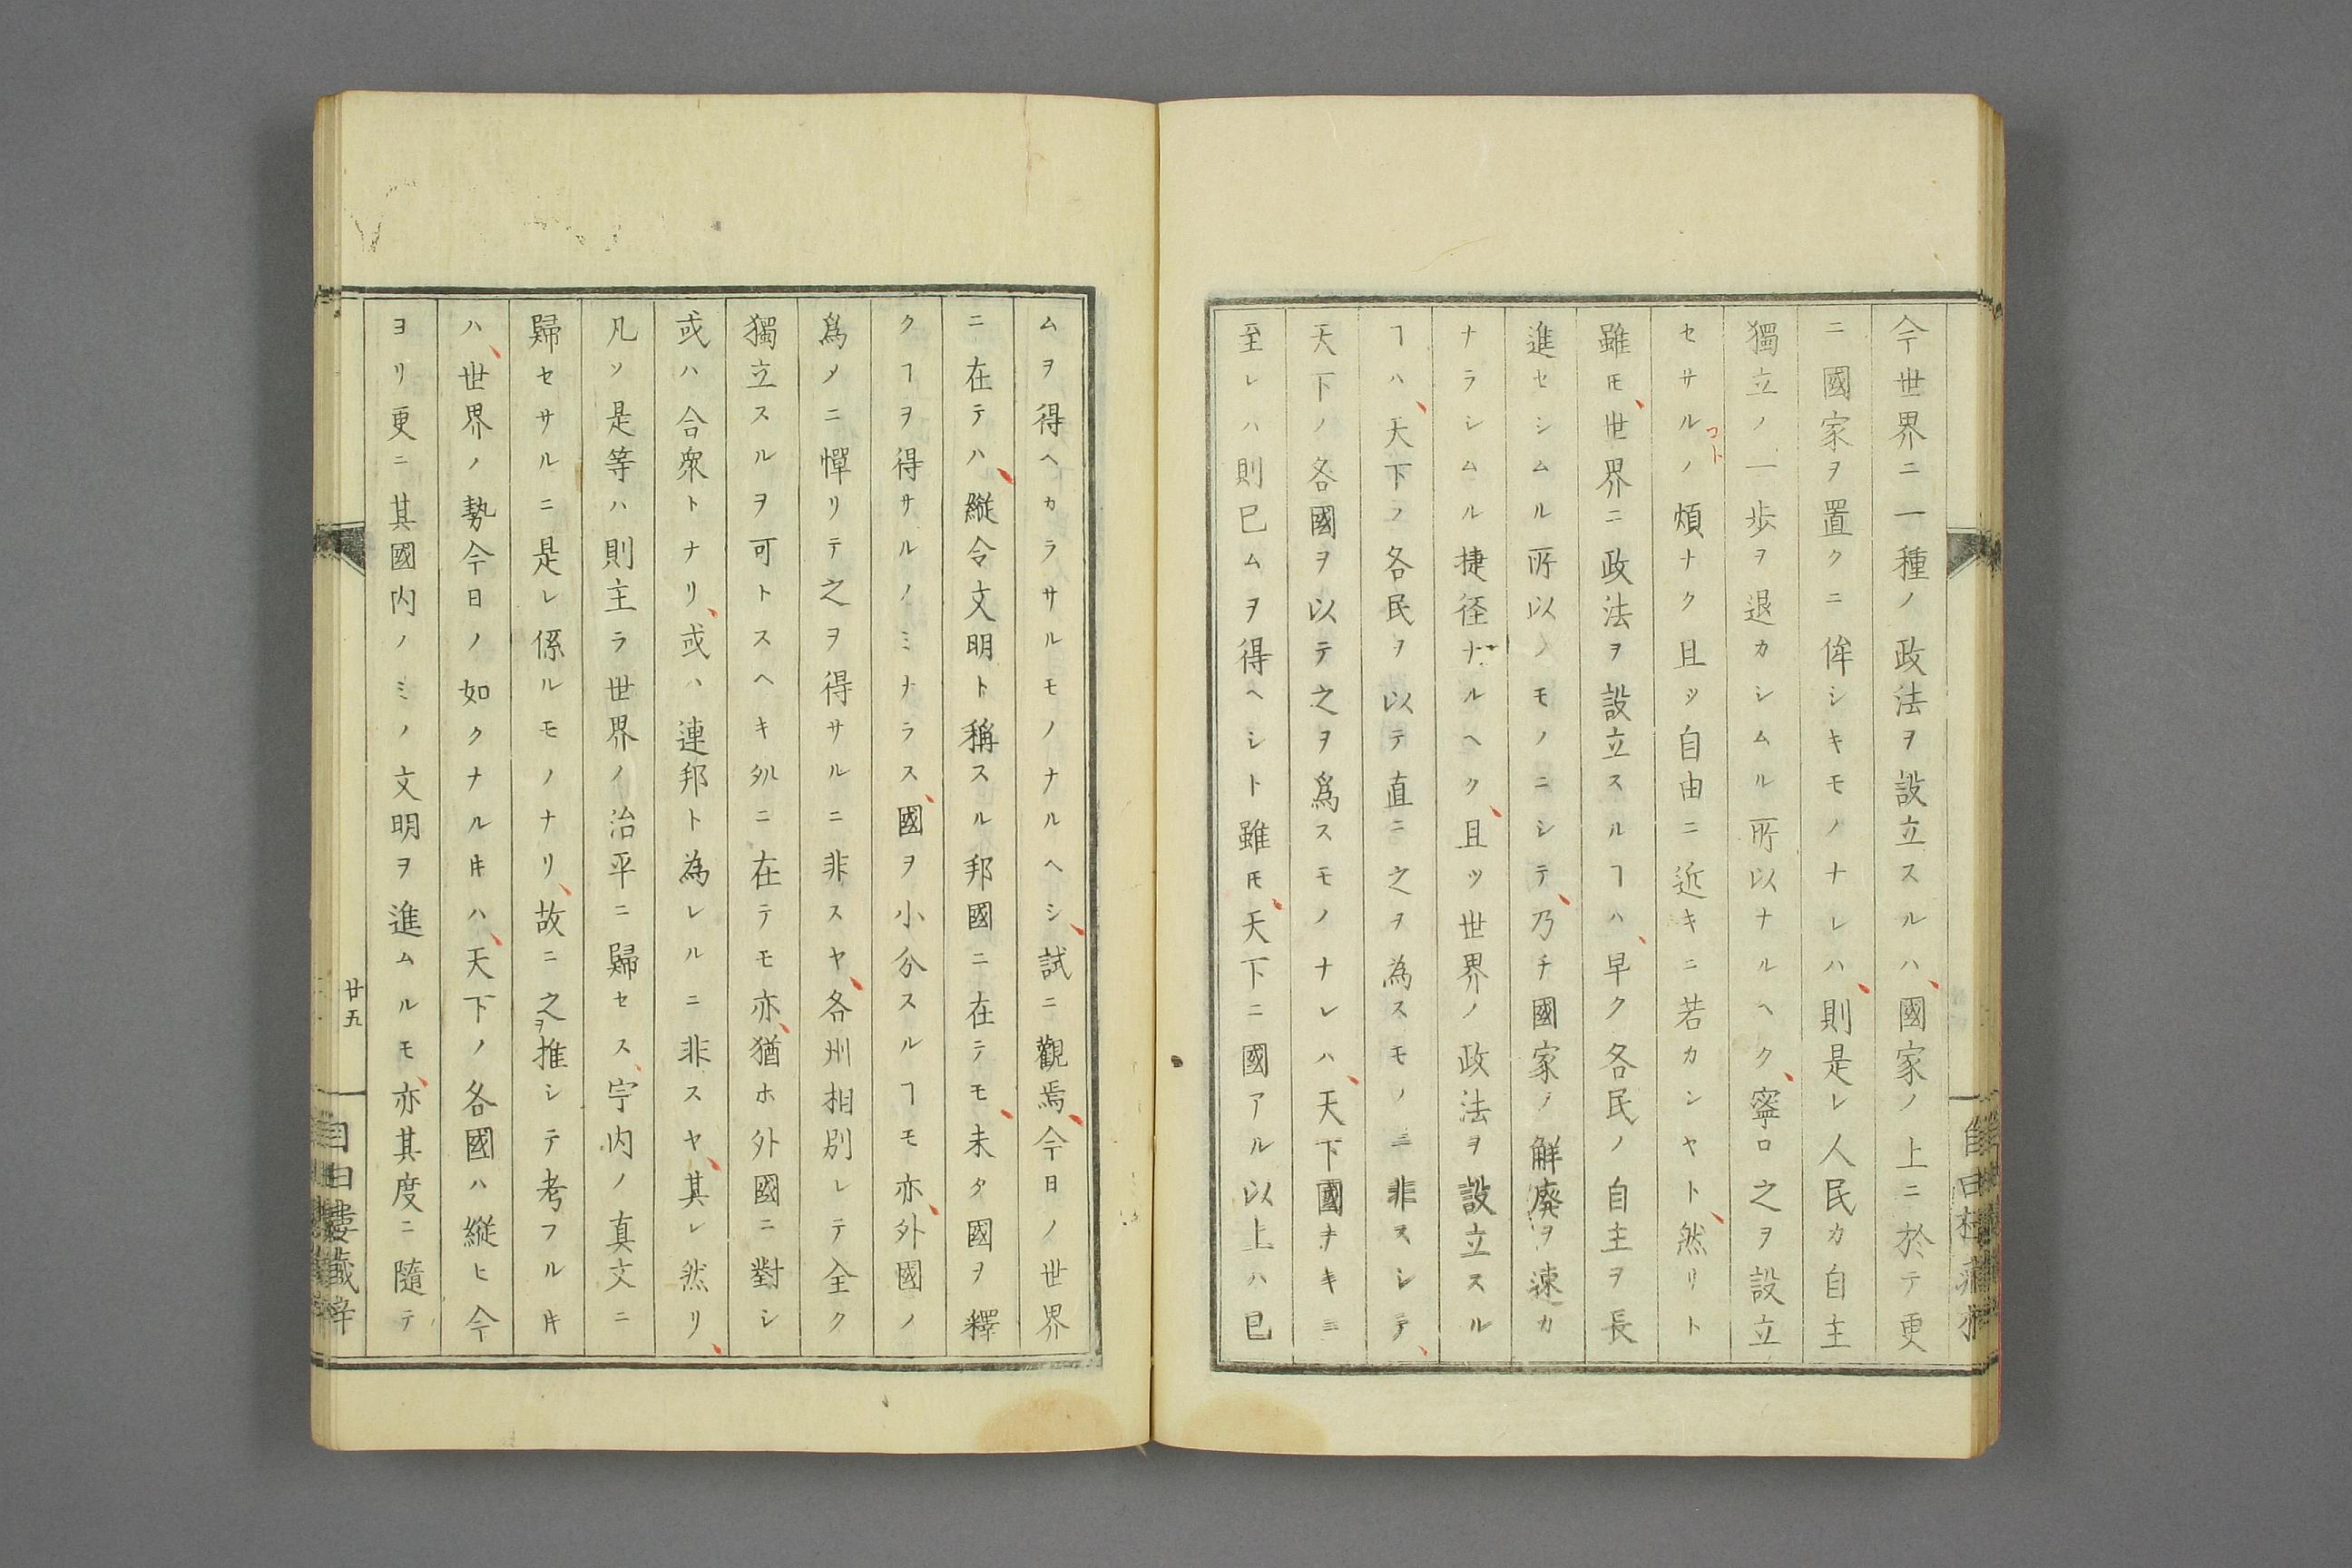 今世界ニ一種ノ政法ヲ設立スルハ、國家ノ上ニ於テ更
ニ國家ヲ置クニ侔シキモノナレハ、則是レ人民カ自主
獨立ノ一歩ヲ退カシムル所以ナルヘク、寧ロ之ヲ設立
セサルコトノ煩ナク且ツ自由ニ近キニ若カンヤト、然リト
雖𪜈、世界ニ政法ヲ設立スルヿハ、早ク各民ノ自主ヲ長
進セシムル所以ノモノニシテ、乃チ國家ノ解廃ヲ速カ
ナラシムル捷径ナルヘク、且ツ世界ノ政法ヲ設立スル
ヿハ、天下ノ各民ヲ以テ直ニ之ヲ為スモノニ非スシテ、
天下ノ各國ヲ以テ之ヲ爲スモノナレハ、天下國ナキニ
至レハ則已ムヲ得ヘシト雖𪜈、天下ニ國アル以上ハ已
ムヲ得ヘカラサルモノナルヘシ、試ニ觀焉、今日ノ世界
ニ在テハ、縦令文明ト稱スル邦國ニ在テモ、未タ國ヲ釋
クヿヲ得サルノミナラス、國ヲ小分スルヿモ亦、外國ノ
爲メニ憚リテ之ヲ得サルニ非スヤ、各州相別レテ全ク
獨立スルヲ可トスヘキ𫠉ニ在テモ亦、猶ホ外國ニ對シ
或ハ合衆トナリ、或ハ連邦ト為レルニ非スヤ、其レ然リ、
凡ソ是等ハ則主ラ世界ノ治平ニ歸セス、宇内ノ真文ニ
歸セサルニ是レ係ルモノナリ、故ニ之ヲ推シテ考フル𪜀
ハ、世界ノ勢今日ノ如クナル𪜀ハ、天下ノ各國ハ縦ヒ今
ヨリ更ニ其國内ノミノ文明ヲ進ムルモ、亦其度ニ隨テ
廿五
自由樓藏梓